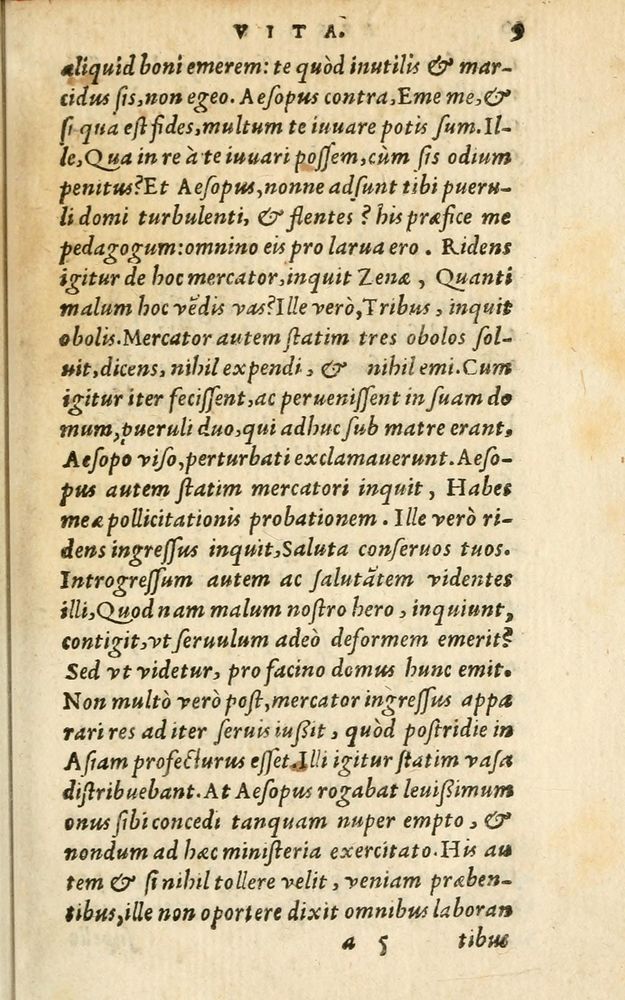 VITA. 9
aliquid boni emerem: te quòd inutilis & mar-
cidus sis, non egeo. Aesopus contra, Eme me, &
si qua est fides, multum te iuuare potis sum. Il-
le, Qua in re à te iuuari possem, cùm sis odium
penitus? Et Aesopus, nonne adsunt tibi pueru-
li domi turbulenti, & flentes? his præfice me
pedagogum: omnino eis pro larua ero. Ridens
igitur de hoc mercator, inquit Zenæ, Quanti
malum hoc vẽdis vas? Ille verò, Tribus, inquit
obolis. Mercator autem statim tres obolos sol-
uit, dicens, nihil expendi, & nihil emi. Cum
igitur iter fecissent, ac peruenissent in suam do
mum, pueruli duo, qui adhuc sub matre erant,
Aesopo viso, perturbati exclamauerunt. Aeso-
pus autem statim mercatori inquit, Habes
meæ pollicitationis probationem. Ille verò ri-
dens ingressus inquit, Saluta conseruos tuos.
Introgressum autem ac salutãtem videntes
illi, Quod nam malum nostro hero, inquiunt,
contigit, vt seruulum adeò deformem emerit?
Sed vt videtur, pro facino domus hunc emit.
Non multò verò post, mercator ingressus appa
rari res ad iter seruis iußit, quòd postridie in
Asiam profecturus esset. Illi igitur statim vasa
distribuebant. At Aesopus rogabat leuißimum
onus sibi concedi tanquam nuper empto, &
nondum ad hæc ministeria exercitato. His au
tem & si nihil tollere velit, veniam præben-
tibus, ille non oportere dixit omnibus laboran
a 5 tibus